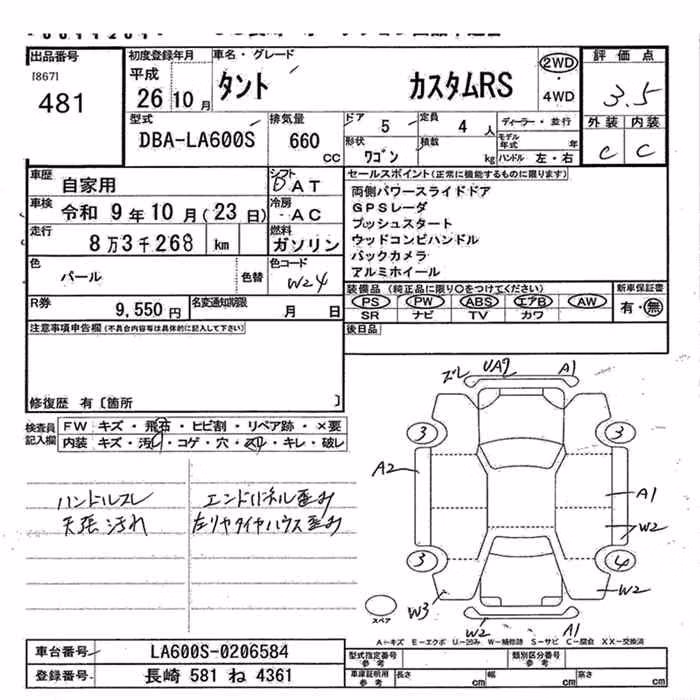 出品番号
[867]
481
初度登録年月
平成
26年10月
車名・グレード
タント カスタムRS
2WD
・
4WD
評価点
3.5
外装 内装
C C
型式
DBA-LA600S
排気量
660 CC
ドア 5
定員 4 人
ディーラー・並行
形状 ワゴン
積載 kg
モデル年式 年
ハンドル 左・右
車歴 自家用
シフト AT
車検 令和 9年10月(23日)
冷房 AC
走行 8万3千268 km
燃料 ガソリン
色 パール
色替
色コード W24
R券 9,550円
名変通知期限 月 日
セールスポイント(正常に機能するものに限ります)
両側パワースライドドア
GPSレーダ
プッシュスタート
ウッドコンビハンドル
バックカメラ
アルミホイール
装備品(純正品に限り○をつけてください)
PS PW ABS エアB AW
SR ナビ TV カワ
新車保証書
有・無
後日品
注意事項申告欄(不具合内容等は具体的に記入して下さい)
修復歴 有〔箇所 〕
検査員記入欄
FW キズ・飛石・ヒビ割・リペア跡・×要
内装 キズ・汚れ・コゲ・穴・スレ・キレ・破レ
ハンドルスレ
天張汚れ
エンドパネル歪み
左リヤタイヤハウス歪み
ズレ UA2 A1
3 3
A2
A1
W2
3 4
W3
W2
W2 A1
スペア
A-キズ E-エクボ U-凹み W-補修跡 S-サビ C-腐食 XX-交換済
車台番号 LA600S-0206584
登録番号 長崎 581 ね 4361
型式指定番号 参考
類別区分番号 参考
車庫証明用 参考
長さ cm 幅 cm 高さ cm